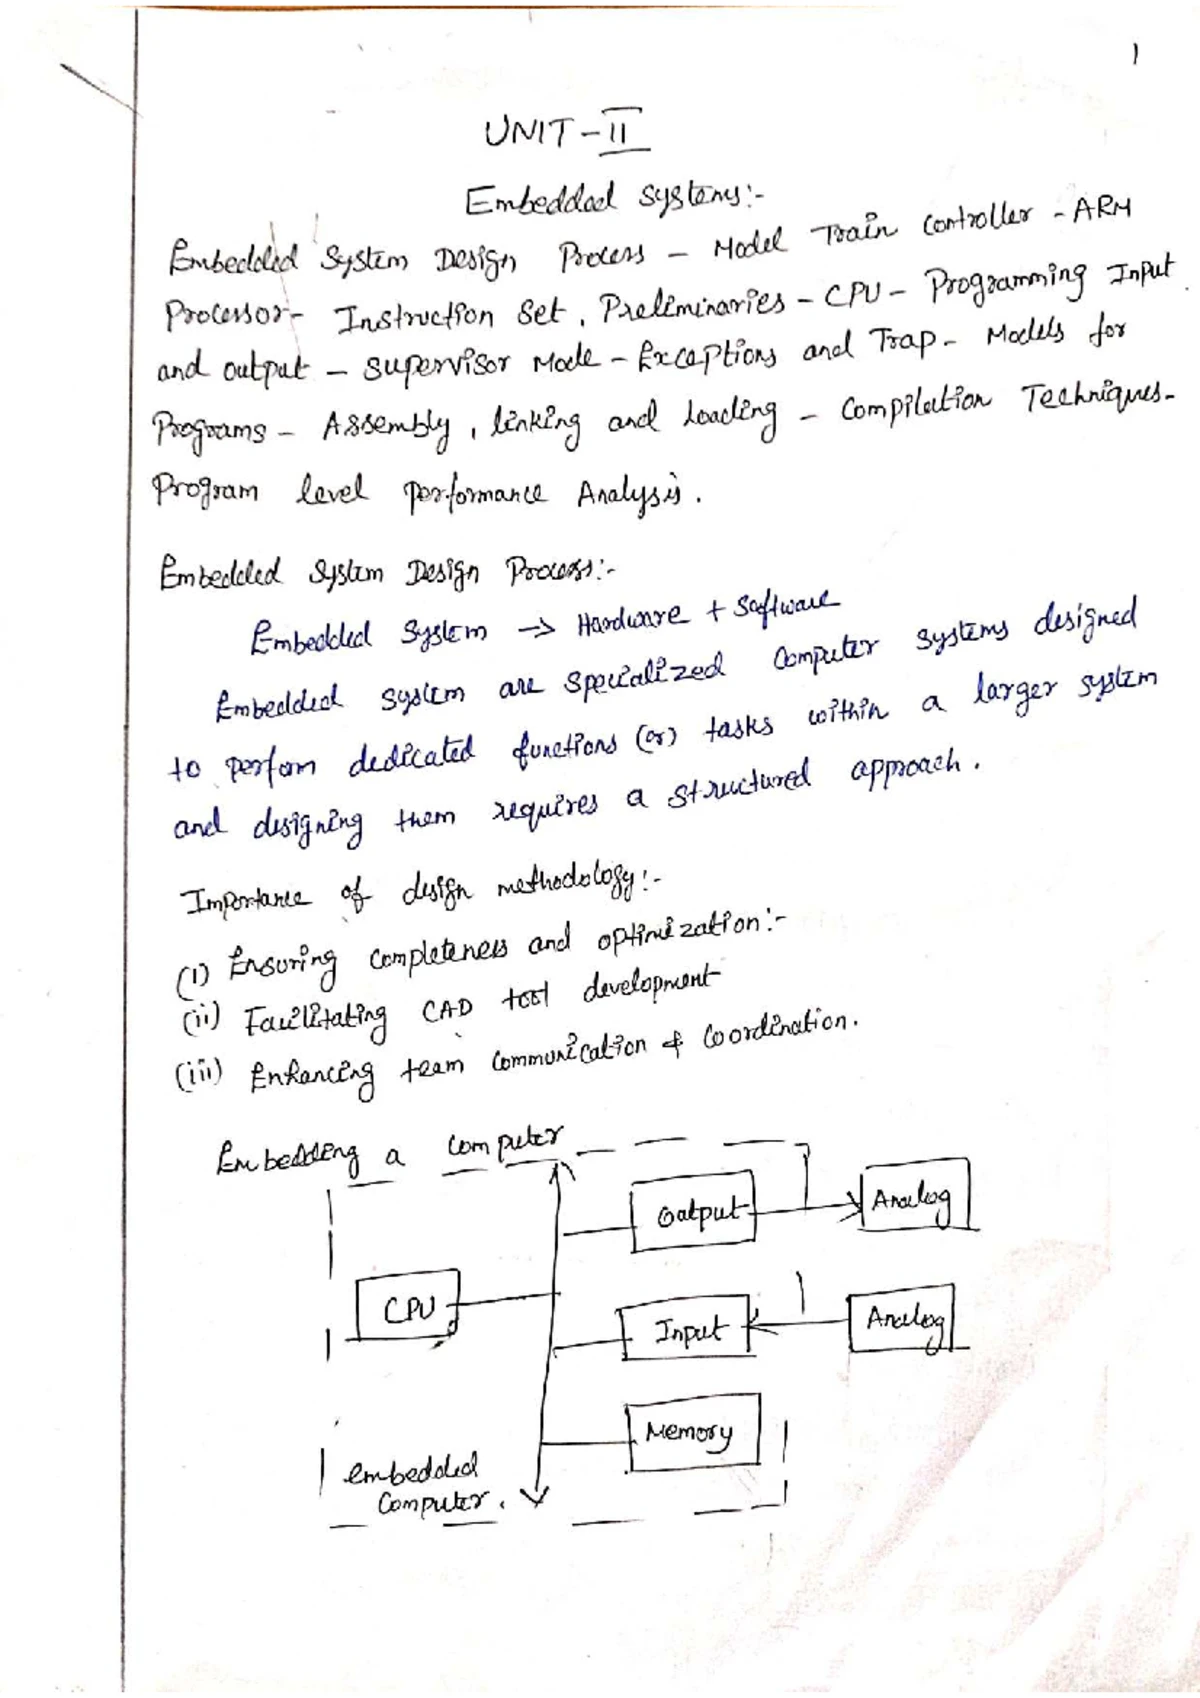 1
UNIT-II
Embedded systems:-
Embedded System Design Process - Model Train Controller - ARM
Processor - Instruction Set, Preliminaries - CPU - Programming Input
and output - Supervisor Mode - Exceptions and Trap - Models for
Programs - Assembly, linking and Loading - Compilation Techniques -
Program level performance Analysis.
Embedded System Design Process:-
Embedded System → Hardware + Software
Embedded system are specialized computer systems designed
to perfom dedicated functions (or) tasks within a larger system
and designing them requires a structured approach.
Importance of design methodology:-
(i) Ensuring completeness and optimization:-
(ii) Facilitating CAD tool development
(iii) Enhancing team communication & coordination.
Embedding a computer
Output
Analog
CPU
Input
Analog
Memory
embedded
Computer.